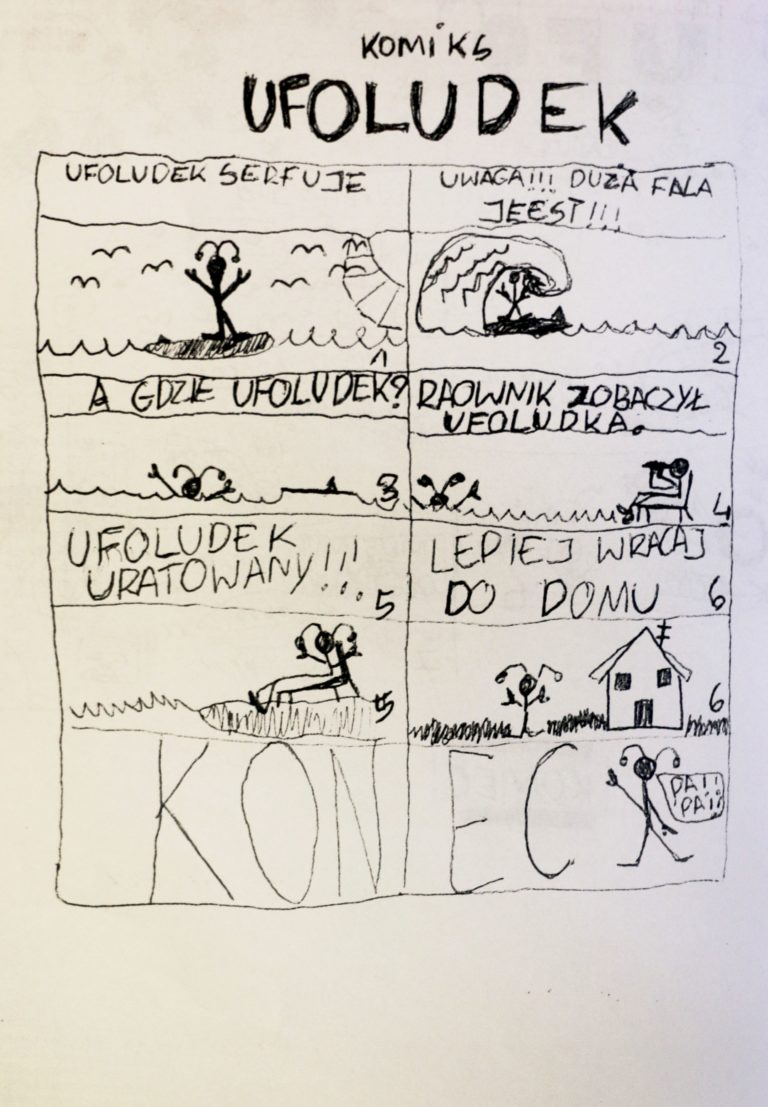 KOMIKS
UFOLUDEK
UFOLUDEK SERFUJE
UWAGA!!! DUŻA FALA
JEEST!!!
1
2
A GDZIE UFOLUDEK?
RAOWNIK ZOBACZYŁ
UFOLUDKA.
3
4
UFOLUDEK
URATOWANY!!!
5
LEPIEJ WRACAJ
DO DOMU 6
5
6
KONIEC
PA!!
PA!!